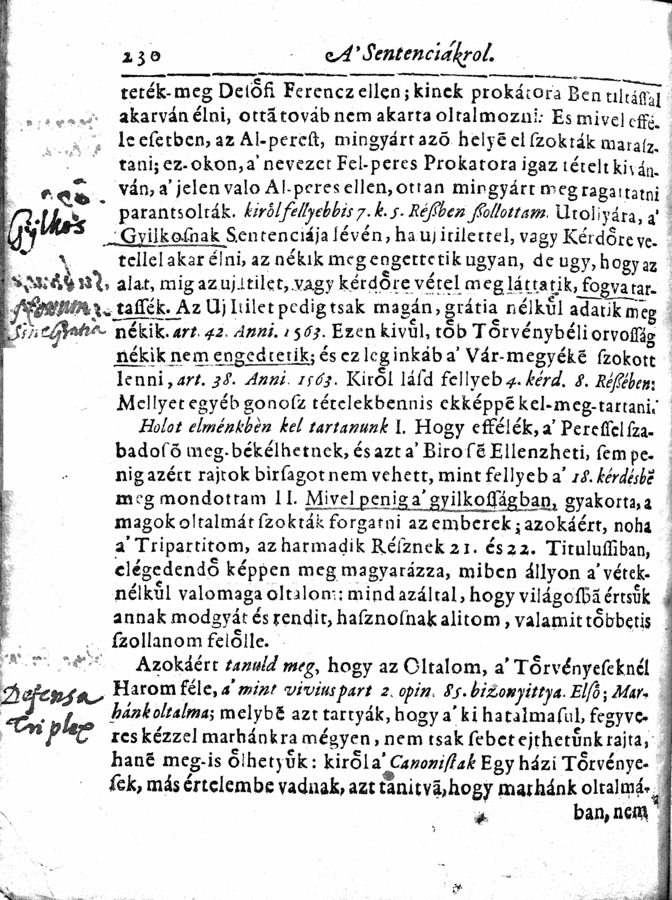 230 A' Sentenciákrol.
teték-meg Desőfi Ferencz ellen; kinek prokátora Ben tiltáſſal
akarván élni, ottā továb nem akarta oltalmozni: Es mivel effé-
le eſetben, az Al-pereſt, mingyárt azō helyē el ſzokták maraſz-
tani; ez-okon, a' nevezet Fel-peres Prokatora igaz tételt kiván-
ván, a' jelen valo Al-peres ellen, ottan mingyárt meg ragattatni
parantsolták. kiről fellyebbis 7. k. 5. Réßben ßollottam. Utollyára, a'
Gyilkoſnak Sentenciája lévén, ha uj itilettel, vagy Kérdőre ve-
tellel akar élni, az nékik meg engettetik ugyan, de ugy, hogy az
alat, mig az uj itilet, vagy kérdőre vétel meg láttatik, fogva tar-
taſſék. Az Uj Itilet pedig tsak magán, grátia nélkűl adatik meg
nékik. art. 42. Anni. 1563. Ezen kivűl, tőb Tőrvénybéli orvoſſág
nékik nem engedtetik; és ez leg inkáb a' Vár-megyékē szokott
lenni, art. 38. Anni. 1563. Kiről láſd fellyeb 4. kérd. 8. Réßében:
Mellyet egyéb gonoſz tételekbennis ekképpē kel-meg-tartani.
Holot elménkbèn kel tartanunk I. Hogy effélék, a' Pereſſel ſza-
badoſō meg-békélhetnek, és azt a' Biro ſē Ellenzheti, ſem pe-
nig azért rajtok birſagot nem vehett, mint fellyeb a' 18. kérdésbē
meg mondottam II. Mivel penig a' gyilkoſſágban, gyakorta, a
magok oltalmát ſzokták forgatni az emberek; azokáért, noha
a' Tripartitom, az harmadik Réſznek 21. és 22. Tituluſſiban,
elégedendő képpen meg magyarázza, miben állyon a' vétek-
nélkűl valomaga oltalom: mind azáltal, hogy világoſſbā értsűk
annak modgyát és rendit, haſznoſnak alitom, valamit tőbbetis
ſzollanom felőlle.
Azokáért tanuld meg, hogy az Oltalom, a' Tőrvényeſeknél
Harom féle, a' mint vivius part 2. opin. 85. bizonyittya. Elſő; Mar-
hánk oltalma; melybē azt tartyák, hogy a' ki hatalmaſul, fegyve-
res kézzel marhánkra mégyen, nem tsak ſebet ejthetűnk rajta,
hanē meg-is őlhetyűk: kiről a' Canoniſtak Egy házi Tőrvénye-
ſek, más értelembe vadnak, azt tānitvā, hogy marhánk oltalmá-
ban, nem
Gyilkos
Sine Gratia
Defensa
triplex